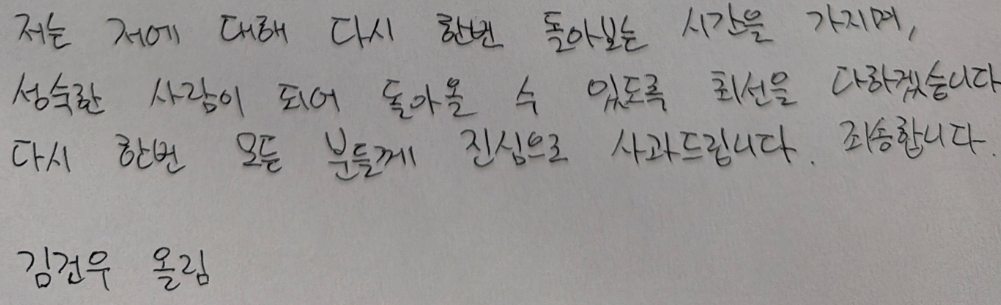 저는 저에 대해 다시 한번 돌아보는 시간을 가지며,
성숙한 사람이 되어 돌아올 수 있도록 최선을 다하겠습니다
다시 한번 모든 분들께 진심으로 사과드립니다. 죄송합니다.
김건우 올림